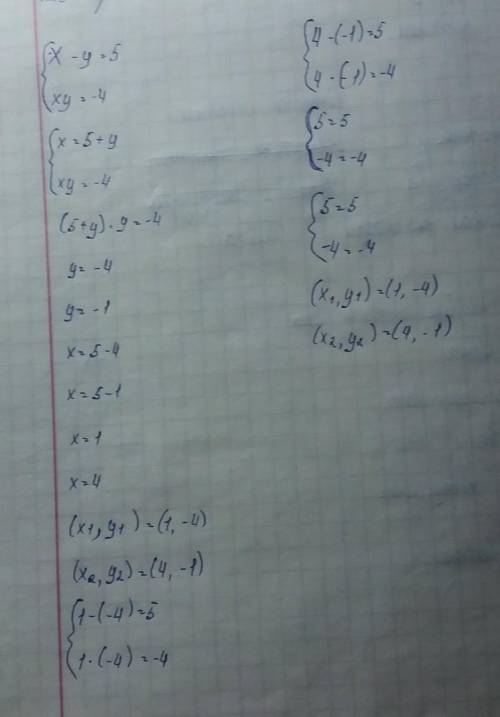 x - y = 5
xy = -4
x = 5 + y
xy = -4
(5+y) · y = -4
y = -4
y = -1
x = 5-4
x = 5-1
x = 1
x = 4
(x₁, y₁) = (1, -4)
(x₂, y₂) = (4, -1)
1-(-4) = 5
1 · (-4) = -4
4-(-1) = 5
4 · (-1) = -4
5 = 5
-4 = -4
5 = 5
-4 = -4
(x₁, y₁) = (1, -4)
(x₂, y₂) = (4, -1)